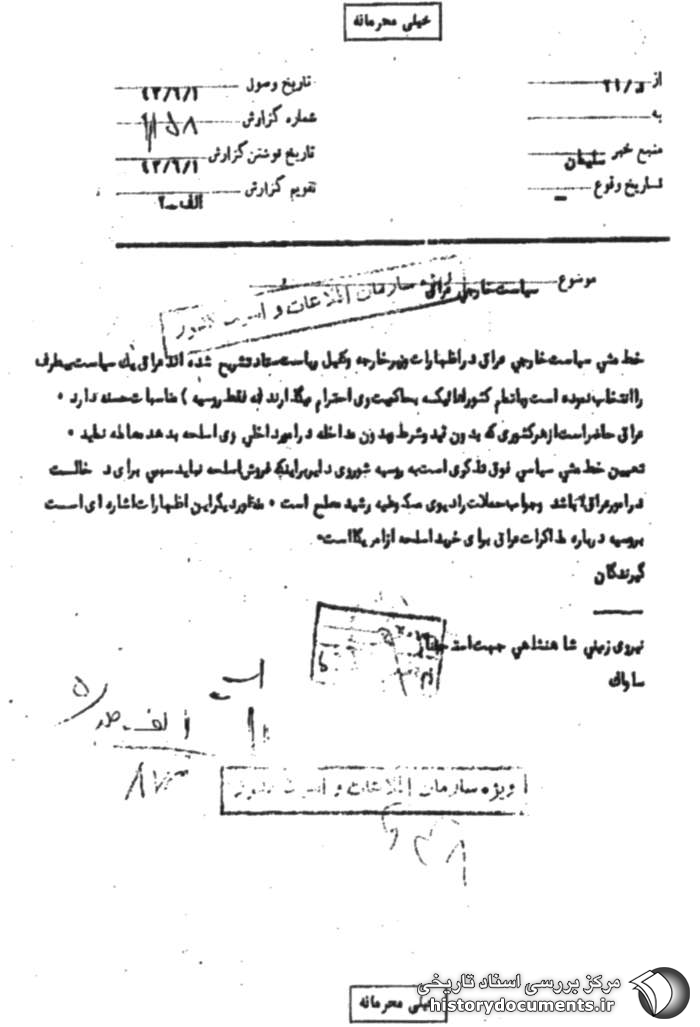 خیلی محرمانه
از ه/۲۱
به
منبع خبر سلیمان
تاریخ وقوع –
تاریخ وصول ۴۳/۶/۱
شماره گزارش
تاریخ نوشتن گزارش ۴۳/۶/۱
تقویم گزارش الف-۲
موضوع سیاست خارجی عراق
ویژه سازمان اطلاعات و امنیت کشور
خط مشی سیاست خارجی عراق در اظهارات وزیر خارجه وکفیل ریاست ستاد تشریح شده اند عراق یك سیاست بیطرف
را انتخاب نموده است وباتمام کشورهائیکه بحاکمیت وی احترام میگذارند (نه فقط روسیه ) مناسبات حسنه دارد ۰
عراق حاضر است از هر کشوری که بدون قید وشرط وبدون مداخله در امور داخلی وی اسلحه بدهد معامله نماید ۰
تعیین خط مشی سیاسی فوق تذکری است به روسیه شوروی دایر براینکه فروش اسلحه نباید سببی برای دخالت
در امور عراق باشد وجواب حملات رادیوی مسکو علیه رشید مصلح است ۰ منظور دیگر این اظهارات اشاره ای است
بروسیه درباره مذاکرات عراق برای خرید اسلحه از امریکا است۰
گیرندگان
نیروی زمینی شاهنشاهی جهت استحضار
ساواك
الف
ویژه سازمان اطلاعات و امنیت کشور
خیلی محرمانه
مرکز بررسی اسناد تاریخی
historydocuments.ir